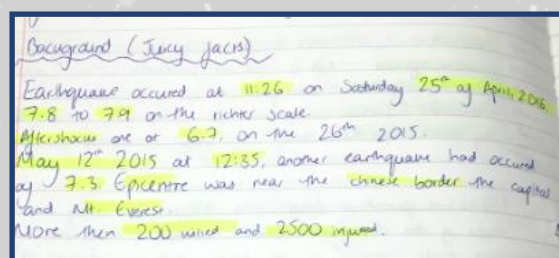 Background (Juicy facts)
Earthquake occured at 11:26 on Saturday 25th of April, 2016.
7.8 to 7.9 on the richter scale.
Aftershocks one of 6.7, on the 26th 2015.
May 12th 2015 at 12:35, another earthquake had occured
of 7.3. Epicentre was near the chinese border the capital
and Mt. Everest.
More then 200 killed and 2500 injured.